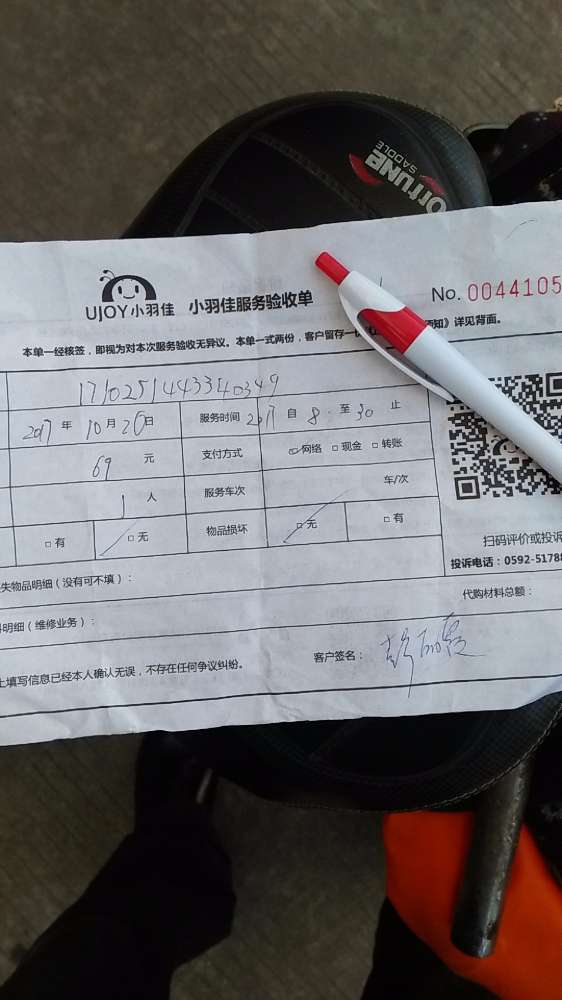 FORTUNE
SADDLE
UJOY小羽佳 小羽佳服务验收单 No. 0044105
本单一经核签，即视为对本次服务验收无异议。本单一式两份，客户留存一 知》详见背面。
2017 年 10 月 26 日 服务时间 2017 自 8 至 30 止
69 元 支付方式 网络 □ 现金 □ 转账
1 人 服务车次 车/次
□ 有 □ 无 物品损坏 □ 无 □ 有
扫码评价或投诉
投诉电话：0592-5178
失物品明细（没有可不填）：
代购材料总额：
明细（维修业务）：
上填写信息已经本人确认无误，不存在任何争议纠纷。 客户签名：